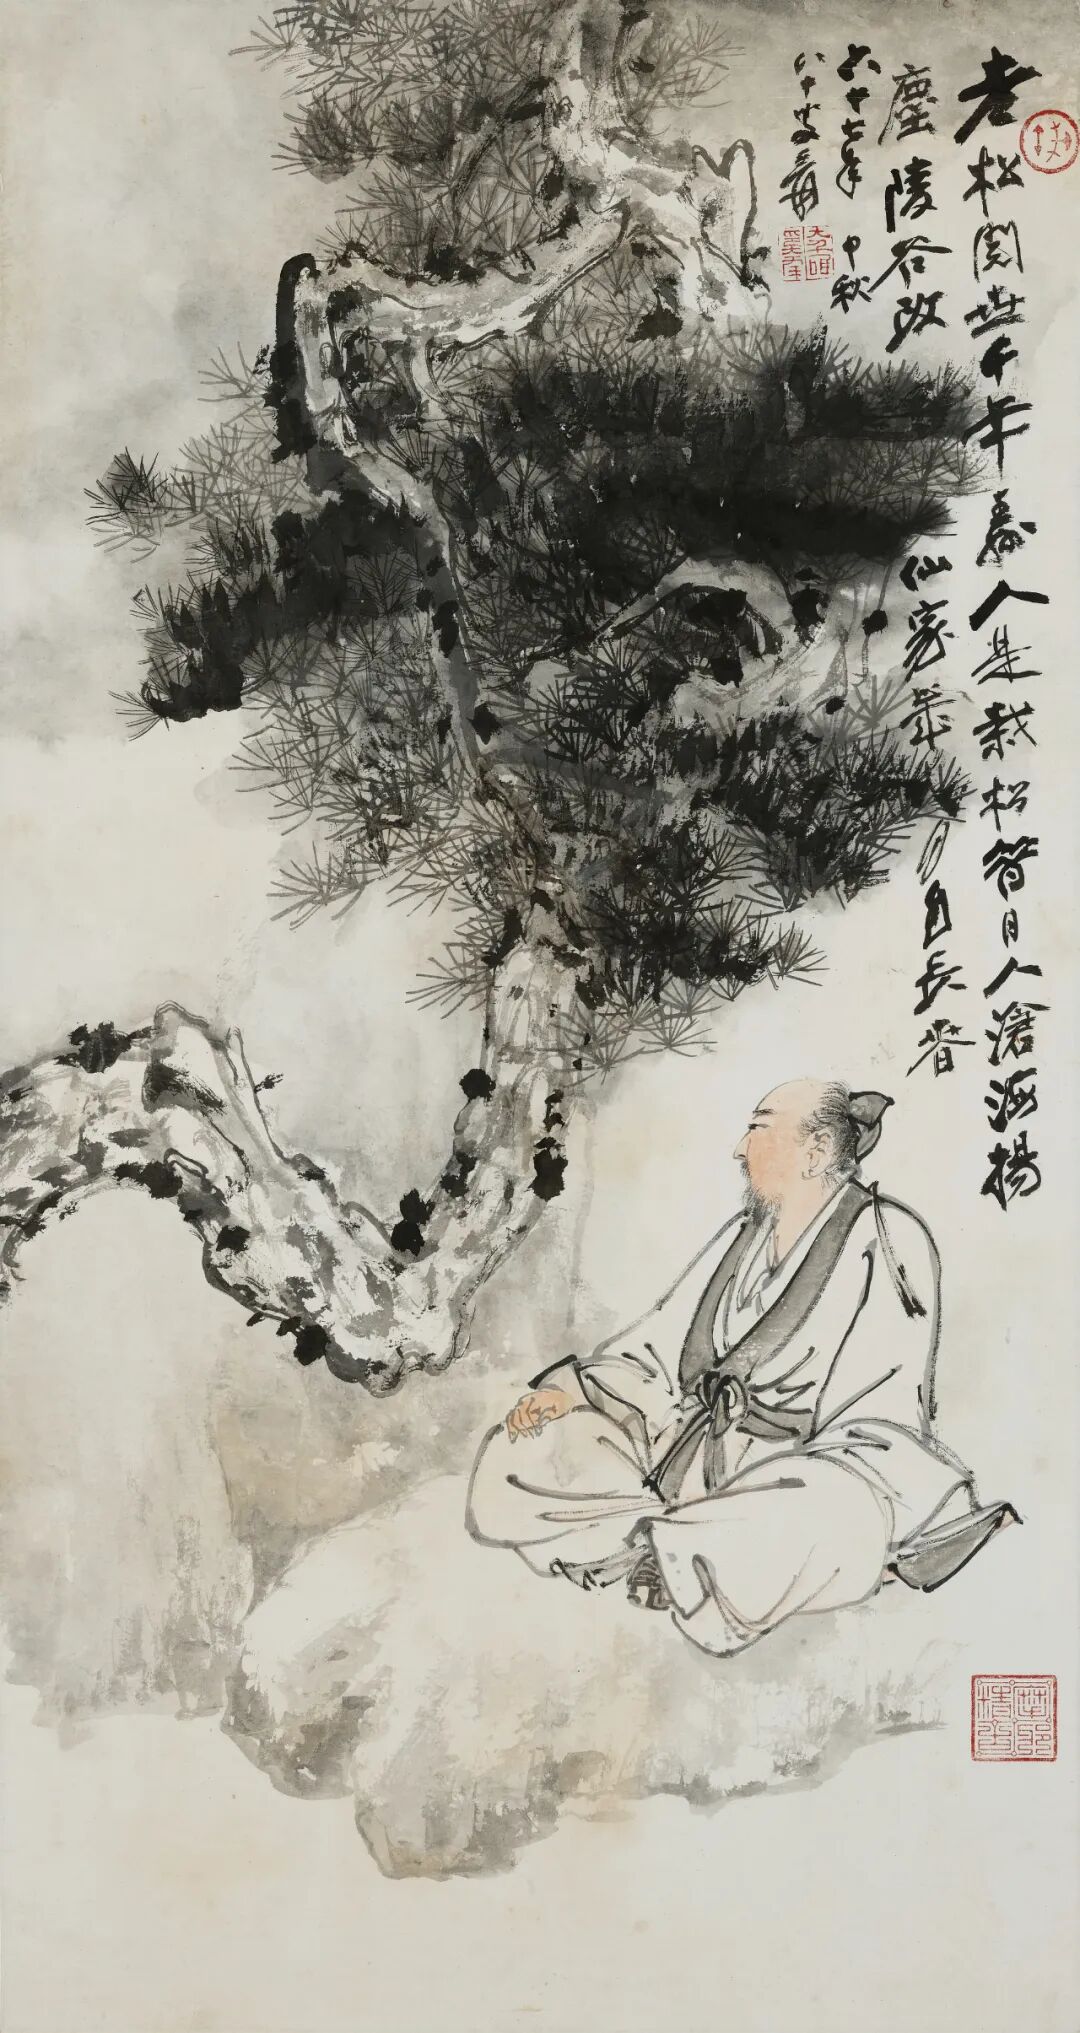 老松閱世千年壽人是栽松昔日人滄海揚
塵陵谷改仙家歲月自長春
六十七年中秋
八十叟爰
摩耶精舍